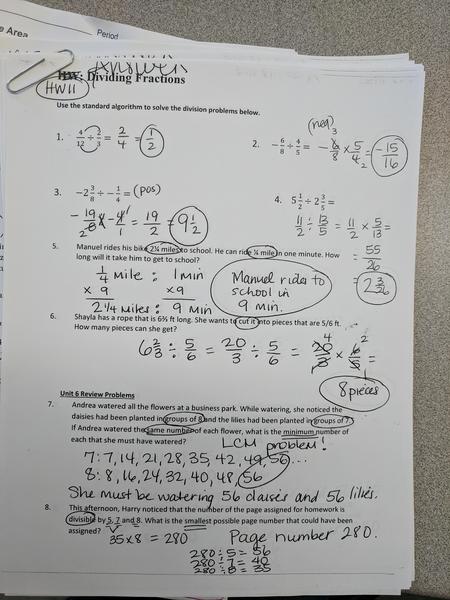 e Area
Period
Answers
HW: Dividing Fractions
HW11
Use the standard algorithm to solve the division problems below.
1. 4/12 ÷ 2/3 = 2/4 = 1/2
(neg)
2. -6/8 ÷ 4/5 = -6/8 3 × 5/4 2 = -15/16
3. -2 3/8 ÷ -1/4 = (pos)
-19/8 2 · -4 1/1 = 19/2 = 9 1/2
4. 5 1/2 ÷ 2 3/5 =
11/2 ÷ 13/5 = 11/2 × 5/13 =
= 55/26
= 2 3/26
5. Manuel rides his bike 2¼ miles to school. He can ride ¼ mile in one minute. How
long will it take him to get to school?
1/4 mile : 1 min
× 9 ×9
2 1/4 miles : 9 min
Manuel rides to
school in
9 min.
6. Shayla has a rope that is 6⅔ ft long. She wants to cut it into pieces that are 5/6 ft.
How many pieces can she get?
6 2/3 ÷ 5/6 = 20/3 ÷ 5/6 = 20 4/3 1 × 6 2/5 1 =
8 pieces
Unit 6 Review Problems
7. Andrea watered all the flowers at a business park. While watering, she noticed the
daisies had been planted in groups of 8 and the lilies had been planted in groups of 7.
If Andrea watered the same number of each flower, what is the minimum number of
each that she must have watered?
LCM problem!
7: 7, 14, 21, 28, 35, 42, 49, 56...
8: 8, 16, 24, 32, 40, 48, 56
She must be watering 56 daises and 56 lilies.
8. This afternoon, Harry noticed that the number of the page assigned for homework is
divisible by 5, 7 and 8. What is the smallest possible page number that could have been
assigned?
35×8 = 280
Page number 280.
280÷5 = 56
280÷7 = 40
280÷8 = 35